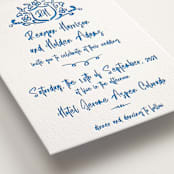 RH
Reagan Harrison
and Holden Adams
invite you to celebrate their wedding
Saturday, the 18th of September, 2021
at five in the afternoon
Hotel Jerome Aspen Colorado
dinner and dancing to follow